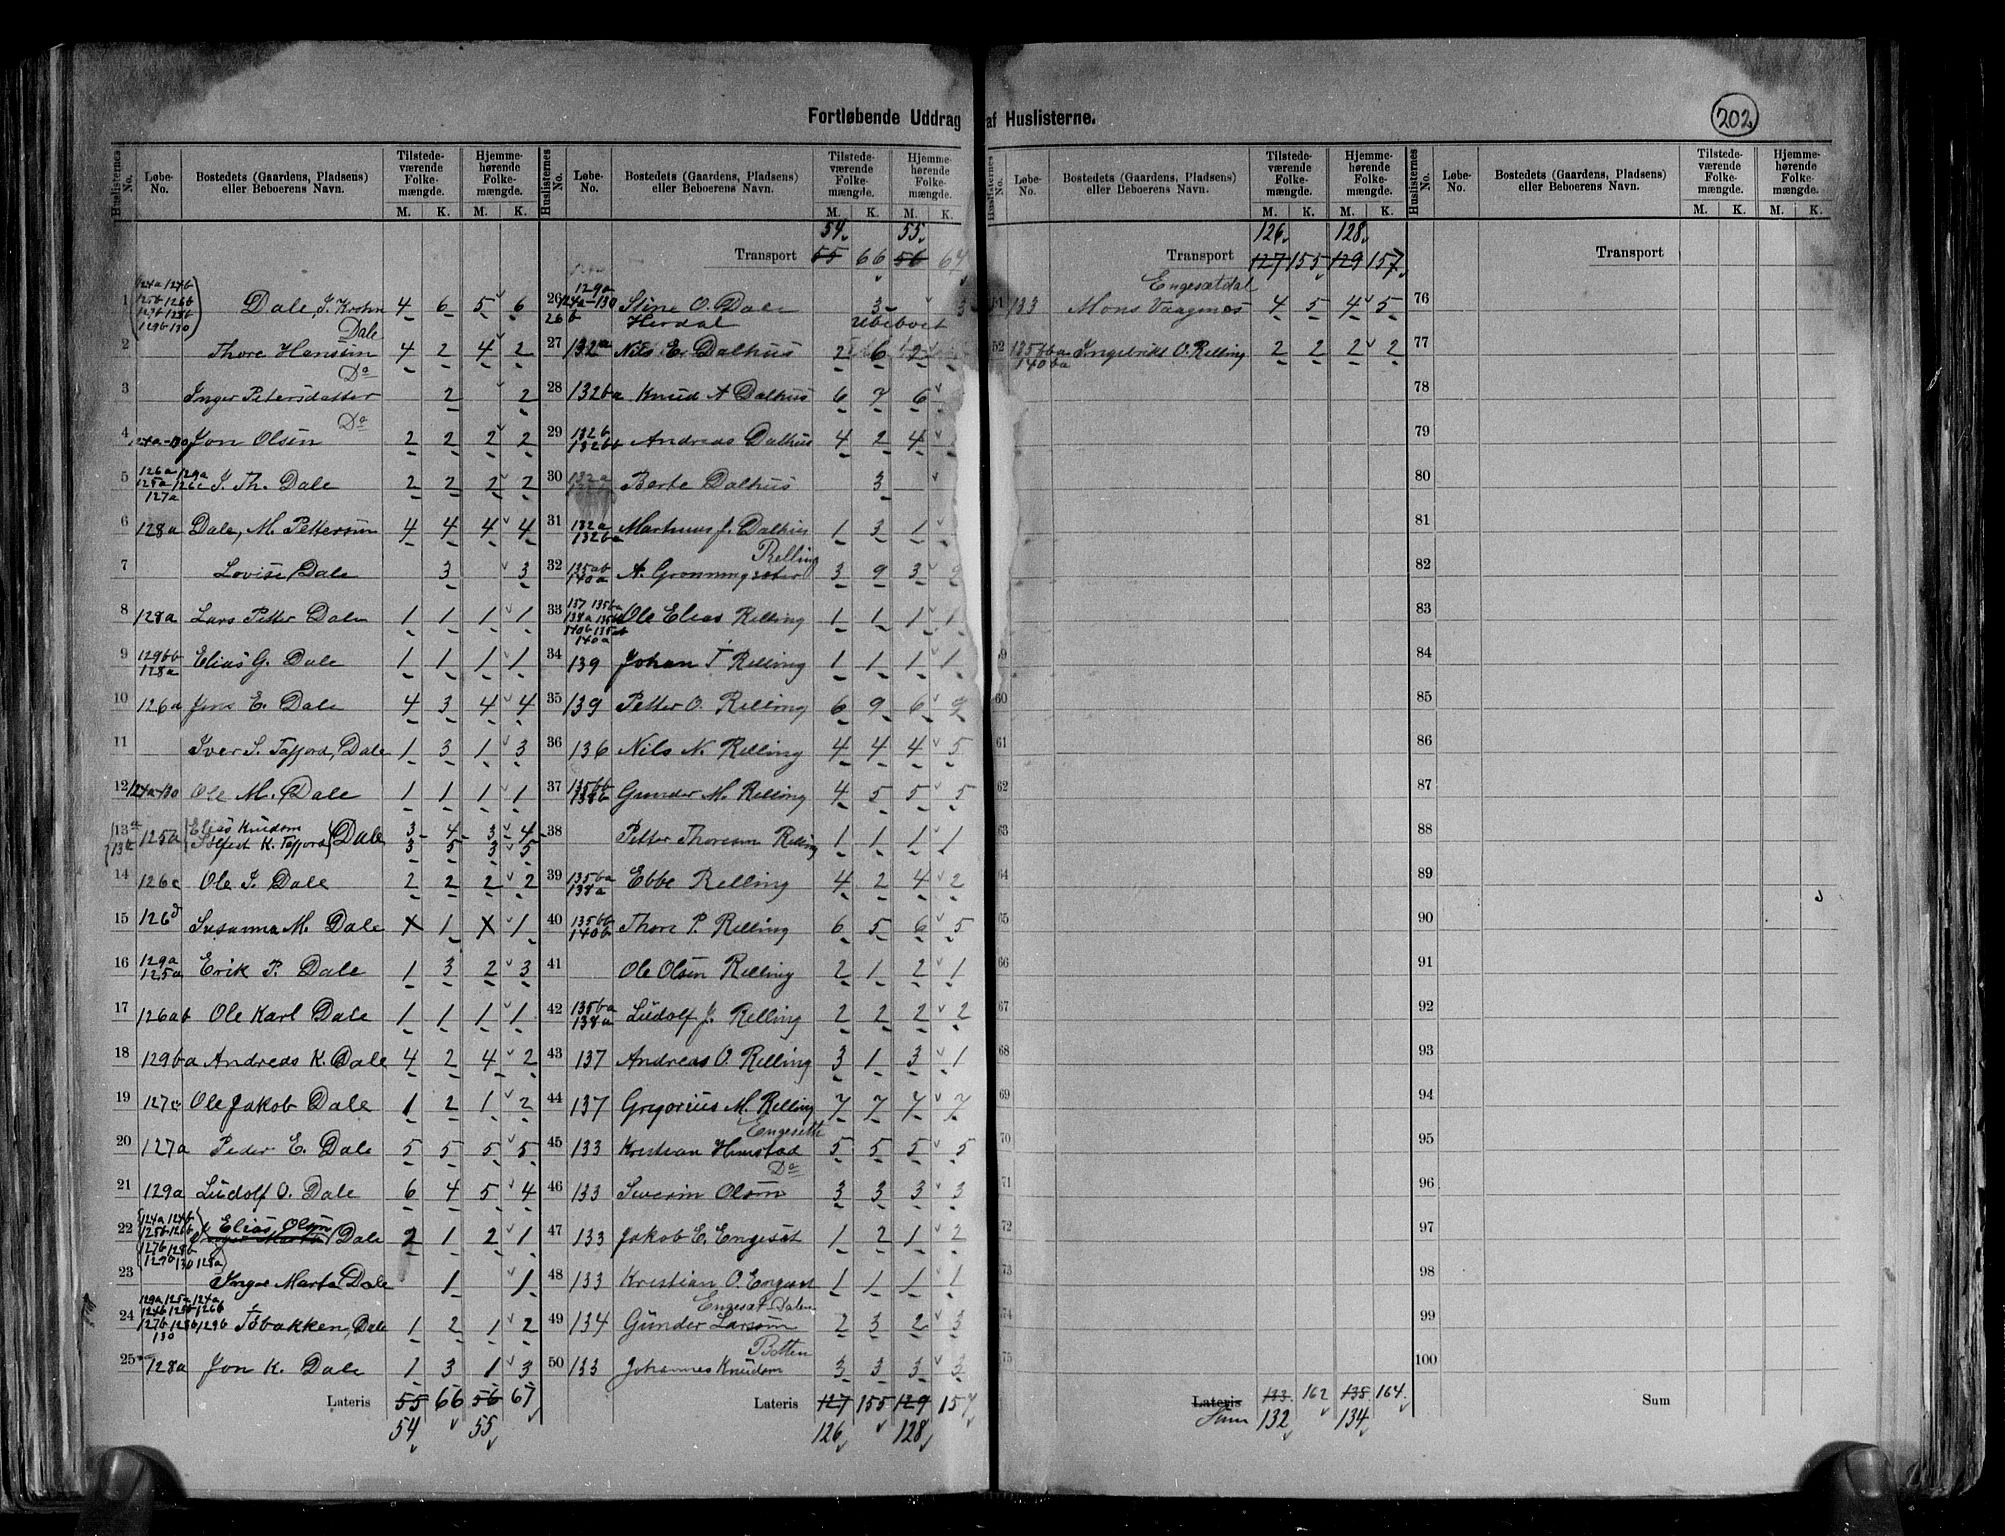 Fortløbende Uddrag af Huslisterne.
202
Huslisternes No. Løbe-No. Bostedets (Gaardens, Pladsens) eller Beboerens Navn. Tilstedeværende Folkemængde. Hjemmehørende Folkemængde.
M. K. M. K.
1 124a 124b 125b 126b 127b 128b 129b 130 Dale, J. Krohn 4 6 5 6
Dale
2 Thore Hansen 4 2 4 2
Do
3 Inger Petersdatter 2 2
Do
4 124a-130 Jon Olsen 2 2 2 2
5 126a 129a 125a 126c 127a J. Th. Dale 2 2 2 2
6 128a Dale, M. Pettersen 4 4 4 4
7 Lovise Dale 3 3
8 128a Lars Petter Dale 1 1 1 1
9 129bb 128a Elias G. Dale 1 1 1 1
10 126d Jens E. Dale 4 3 4 4
11 Iver S. Tafjord, Dale 1 3 1 3
12 124a-130 Ole M. Dale 1 1 1 1
13a 125a Elias Knudsen Dale 3 4 3 4
13b K. Tafjord 3 5 3 5
14 126c Ole S. Dale 2 2 2 2
15 126d Susanna M. Dale X 1 X 1
16 129a 125a Erik P. Dale 1 3 2 3
17 126ab Ole Karl Dale 1 1 1 1
18 129ba Andreas K. Dale 4 2 4 2
19 127c Ole Jakob Dale 1 2 1 2
20 127a Peder E. Dale 5 5 5 5
21 129a Ludolf O. Dale 6 4 5 4
22 124a 124b 125b 126b 127b 128b 129b 130 128a Elias Olsen Dale 2 1 2 1
23 Inger Marta Dale 1 1
24 129a 125a 124a 124b 125b 126b 127b 128b 129b 130 Tøbakken, Dale 1 2 1 2
25 128a Jon K. Dale 1 3 1 3
Lateris 55 66 56 67
54 55
Huslisternes No. Løbe-No. Bostedets (Gaardens, Pladsens) eller Beboerens Navn. Tilstedeværende Folkemængde. Hjemmehørende Folkemængde.
M. K. M. K.
54 55
Transport 55 66 56 67
26 129a 124a-130 Stine O. Dale 3 3
26b Herdal Ubeboet
27 132a Nils E. Dalhus 2 6 2
28 132ba Knud A Dalhus 6 7 6
29 132b 132bb Andreas Dalhus 4 2 4
30 132a Berte Dalhus 3
31 132a 132ba Martinus J. Dalhus 1 3 1
Relling
32 135ab 140a A. Grønningsæter 3 9 3 9
33 137 135ba 138a 140b 140a Ole Elias Relling 1 1 1 1
34 139 Johan T Relling 1 1 1 1
35 139 Petter O. Relling 6 9 6 9
36 136 Nils N. Relling 4 4 4 5
37 135bb 138b Gunder M. Relling 4 5 5 5
38 Petter Thoresen Relling 1 1 1 1
39 135ba 138a Ebbe Relling 4 2 4 2
40 135bb 140b Thore P. Relling 6 5 6 5
41 Ole Olsen Relling 2 1 2 1
42 135ba 138a Ludolf J. Relling 2 2 2 2
43 137 Andreas O. Relling 3 1 3 1
44 137 Gregorius M. Relling 7 7 7 7
Engesette
45 133 Kristian Hinstad 5 5 5 5
Do
46 133 Severin Olsen 3 3 3 3
47 133 Jakob E. Engeset 1 2 1 2
48 133 Kristian O. Engeset 1 1 1 1
Engesæt Dalen
49 134 Gunder Larsen 2 3 2 3
Botten
50 133 Johannes Knudsen 3 3 3 3
Lateris 127 155 129 157
126 128
Huslisternes No. Løbe-No. Bostedets (Gaardens, Pladsens) eller Beboerens Navn. Tilstedeværende Folkemængde. Hjemmehørende Folkemængde.
M. K. M. K.
126 128
Transport 127 155 129 157
Engesætdal
51 133 Mons Vaagnes 4 5 4 5
52 135bba 140ba Ingebrikt O. Relling 2 2 2 2
59
60
61
62
63
64
65
66
67
68
69
70
71
72
73
74
75
Lateris 133 162 135 164
Sum 132 134
Huslisternes No. Løbe-No. Bostedets (Gaardens, Pladsens) eller Beboerens Navn. Tilstedeværende Folkemængde. Hjemmehørende Folkemængde.
M. K. M. K.
Transport
76
77
78
79
80
81
82
83
84
85
86
87
88
89
90
91
92
93
94
95
96
97
98
99
100
Sum